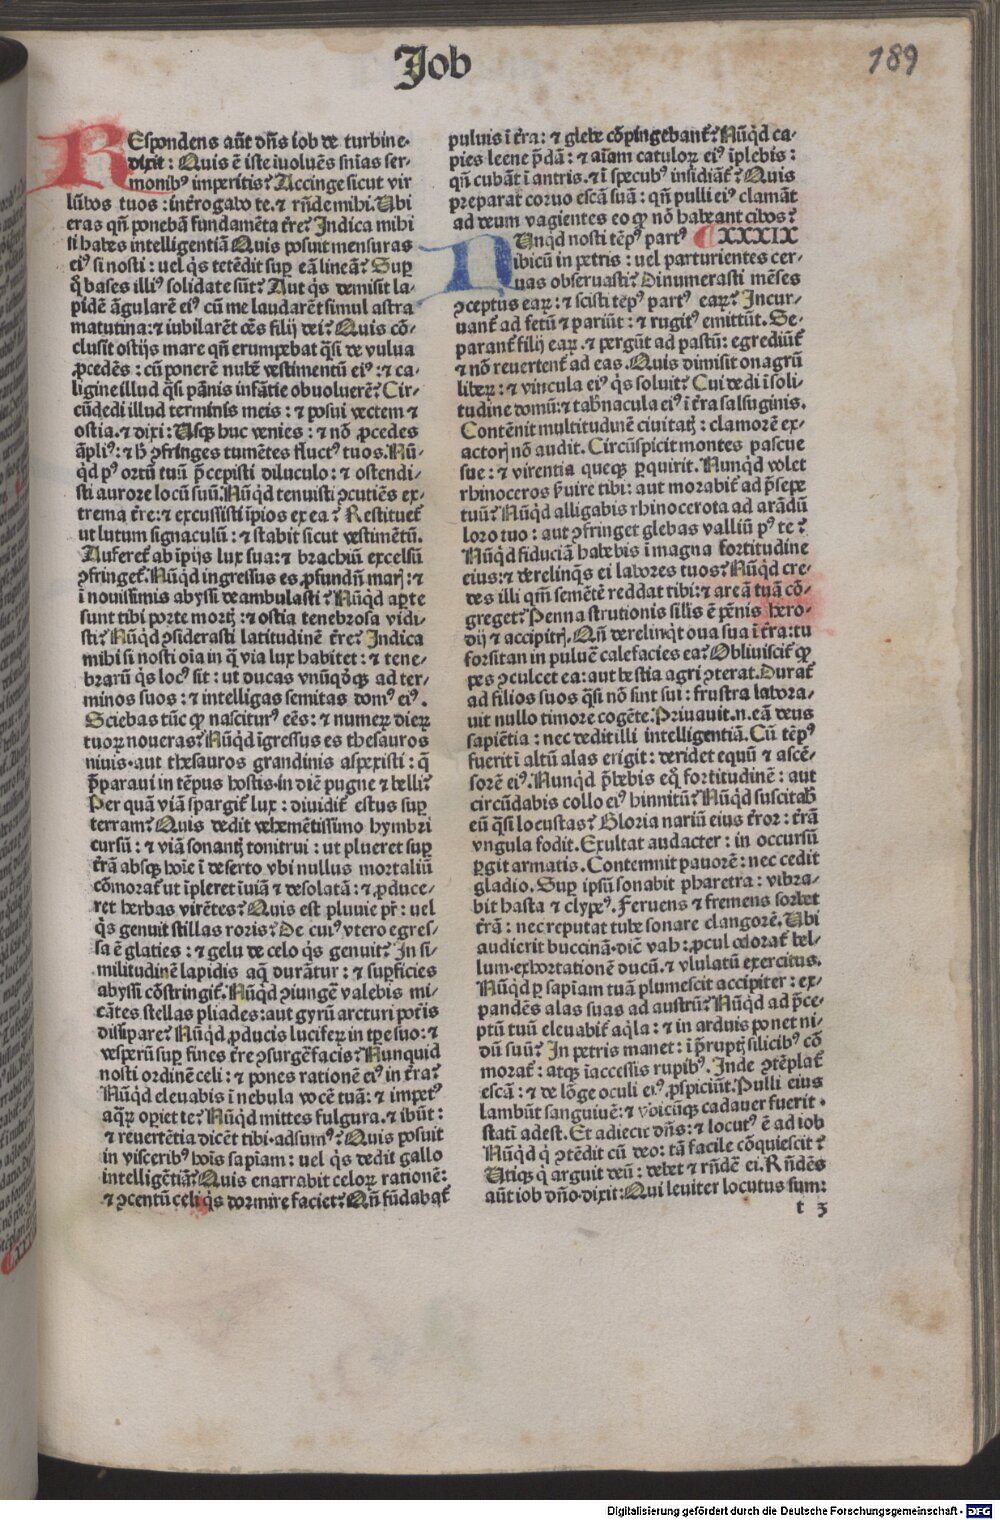 Job
189
REspondens aūt dn̄s iob de turbine
dixit : Quis ē iste īuoluēs sn̄ias ser-
monibꝰ imperitis? Accinge sicut vir
lūbos tuos : int̄rogabo te. ⁊ rn̄de mihi. Ubi
eras qn̄ ponebā fundamēta t̄re? Indica mihi
si habes intelligentiā Quis posuit mensuras
eiꝰ si nosti : uel q̇s tetēdit suꝑ eā lineā? Suꝑ
q̄ bases illiꝰ solidate sūt? Aut q̇s demisit la-
pidē āgularē eiꝰ cū me laudarēt simul astra
matutina: ⁊ iubilarēt oēs filij dei? Quis cō-
clusit ostijs mare qn̄ erumpebat q̄si de vulua
ꝓcedēs : cū ponerē nubē vestimentū eiꝰ : ⁊ ca-
ligine illud q̄si pānis infātie obuoluerē? Cir-
cūdedi illud terminis meis : ⁊ posui vectem ⁊
ostia. ⁊ dixi : Usqꝫ huc venies : ⁊ nō ꝓcedes
āpliꝰ : ⁊ h̄ ꝯfringes tumētes fluctꝰ tuos. Nū-
q̇d pꝰ ortū tuū p̄cepisti diluculo : ⁊ ostendi-
sti aurore locū suū. Nūq̇d tenuisti ꝯcutiēs ex-
trema t̄re: ⁊ excussisti īpios ex ea? Restituet̄
ut lutum signaculū : ⁊ stabit sicut vestimētū.
Auferet̄ ab īpijs lux sua: ⁊ brachiū excelsū
ꝯfringet̄. Nūq̇d ingressus es ꝓfundū marꝭ : ⁊
ī nouissimis abyssi deambulasti? Nūq̇d aꝑte
sunt tibi porte mortꝭ : ⁊ ostia tenebrosa vidi-
sti? Nūq̇d ꝯsiderasti latitudinē t̄re? Indica
mihi si nosti oīa in q̄ via lux habitet : ⁊ tene-
brarū q̇s locꝰ sit : ut ducas vnūq̄dqꝫ ad ter-
minos suos : ⁊ intelligas semitas domꝰ eiꝰ.
Sciebas tūc ꝙ nasciturꝰ eēs : ⁊ numeꝝ dieꝝ
tuoꝝ noueras? Nūq̇d īgressus es thesauros
niuis. aut thesauros grandinis aspexisti : q̄
p̄paraui in tēpus hostis. in diē pugne ⁊ belli?
Per quā viā spargit̄ lux : diuidit̄ estus suꝑ
terram? Quis dedit vehemētissimo hymbri
cursū : ⁊ viā sonantꝭ tonitrui : ut plueret suꝑ
t̄rā absqꝫ hoīe ī deserto vbi nullus mortaliū
cōmorat̄ ut īpleret īuiā ⁊ desolatā : ⁊ ꝓduce-
ret herbas virētes? Quis est pluuie pr̄ : uel
q̇s genuit stillas roris? De cuiꝰ vtero egres-
sa ē glaties : ⁊ gelu de celo q̇s genuit? In si-
militudinē lapidis aq̄ durātur : ⁊ suꝑficies
abyssi cōstringit̄. Nūq̇d ꝯiungē valebis mi-
cātes stellas pliades: aut gyrū arcturi potis
dissipare? Nūq̇d ꝓducis lucifeꝝ in tpe suo: ⁊
vesperū suꝑ fines t̄re ꝯsurgē facis? Nunquid
nosti ordinē celi : ⁊ pones rationē eiꝰ in t̄ra?
Nūq̇d eleuabis ī nebula vocē tuā: ⁊ impetꝰ
aq̄ꝝ oꝑiet te? Nūq̇d mittes fulgura. ⁊ ibūt :
⁊ reuertētia dicēt tibi. adsumꝰ? Quis posuit
in visceribꝰ hoīs sapīam : uel q̇s dedit gallo
intelligētiā? Quis enarrabit celoꝝ rationē:
⁊ ꝯcentū celi q̇s dormire faciet? Qn̄ fūdabat̄
puluis ī t̄ra: ⁊ glebe cōpingebant̄? Nūq̇d ca-
pies leene p̄dā : ⁊ aīam catuloꝝ eiꝰ īplebis :
qn̄ cubāt ī antris. ⁊ ī specubꝰ insidiāt̄? Quis
p̄parat coruo escā suā : qn̄ pulli eiꝰ clamāt
ad deum vagientes eo ꝙ nō habeant cibos?
NUnqd nosti tēpꝰ partꝰ ¶ XXXIX
ibicū in petris : uel parturientes cer-
uas obseruasti? Dinumerasti mēses
ꝯceptus eaꝝ : ⁊ scisti tēpꝰ partꝰ eaꝝ? Incur-
uant̄ ad fetū ⁊ pariūt : ⁊ rugitꝰ emittūt. Se-
parant̄ filij eaꝝ. ⁊ pergūt ad pastū: egrediūt̄
⁊ nō reuertent̄ ad eas. Quis dimisit onagrū
libeꝝ : ⁊ vincula eiꝰ q̇s soluit? Cui dedi ī soli-
tudine domū: ⁊ tab̄nacula eiꝰ ī t̄ra salsuginis.
Contēnit multitudinē ciuitatꝭ : clamorē ex-
actorꝭ nō audit. Circūspicit montes pascue
sue : ⁊ virentia queqꝫ ꝑquirit. Nunq̇d volet
rhinoceros s̄uire tibi: aut morabit̄ ad p̄sepe
tuū? Nūq̇d alligabis rhinocerota ad arādū
loro tuo : aut ꝯfringet glebas valliū pꝰ te?
Nūq̇d fiduciā habebis ī magna fortitudine
eius: ⁊ derelinq̇s ei labores tuos? Nūq̇d cre-
des illi qm̄ semētē reddat tibi: ⁊ areā tuā cō-
greget? Penna strutionis sīlis ē pēnis hero-
dij ⁊ accipitrꝭ. Qn̄ derelinq̇t oua sua ī t̄ra: tu
forsitan in puluē calefacies ea? Obliuiscit̄ ꝙ
pes ꝯculcet ea: aut bestia agri ꝯterat. Durat̄
ad filios suos q̄si nō sint sui : frustra labora-
uit nullo timore cogēte. Priuauit. n. eā deus
sapiētia : nec dedit illi intelligentiā. Cū tēpꝰ
fuerit ī altū alas erigit : deridet equū ⁊ ascē-
sorē eiꝰ. Nunq̇d p̄bebis eq̇ fortitudinē : aut
circūdabis collo eiꝰ hinnitū? Nūq̇d suscitab̄
eū q̄si locustas? Gloria nariū eius t̄ror : t̄rā
vngula fodit. Exultat audacter : in occursū
ꝑgit armatis. Contemnit pauorē : nec cedit
gladio. Suꝑ ipsū sonabit pharetra : vibra-
bit hasta ⁊ clypeꝰ. Feruens ⁊ fremens sorbet
t̄rā : nec reputat tube sonare clangorē. Ubi
audierit buccinā. dicit vah : ꝓcul odorat̄ bel-
lum. exhortationē ducū. ⁊ vlulatū exercitus.
Nūq̇d ꝑ sapīam tuā plumescit accipiter : ex-
pandēs alas suas ad austrū? Nūq̇d ad p̄ce-
ptū tuū eleuabit̄ aq̇la : ⁊ in arduis ponet ni-
dū suū? In petris manet : ī p̄ruptꝭ silicibꝰ cō
morat̄ : atqꝫ īaccessis rupibꝰ. Inde ꝯtēplat̄
escā : ⁊ de lōge oculi eiꝰ ꝓspiciūt. Pulli eius
lambūt sanguinē: ⁊ vbicūqꝫ cadauer fuerit.
statī adest. Et adiecit dn̄s: ⁊ locutꝰ ē ad iob
Nūq̇d q̇ ꝯtēdit cū deo: tā facile cōquiescit?
Utiqꝫ q̇ arguit deū : debet ⁊ rn̄dē ei. Rn̄dēs
aūt iob dn̄o. dixit : Qui leuiter locutus sum:
t 3
Digitalisierung gefördert durch die Deutsche Forschungsgemeinschaft - DFG